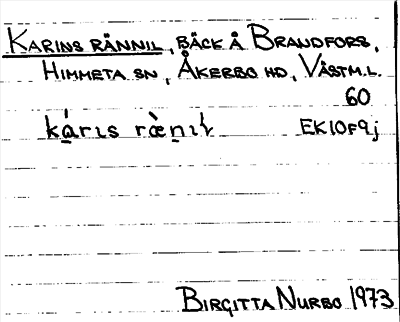 KARINS RÄNNIL, BÄCK Å BRANDFORS,
HIMMETA SN, ÅKERBO HD, VÄSTM.L.
60
ká̱rıs ræ̀ṇıl EK10F9j
BIRGITTA NURBO 1973